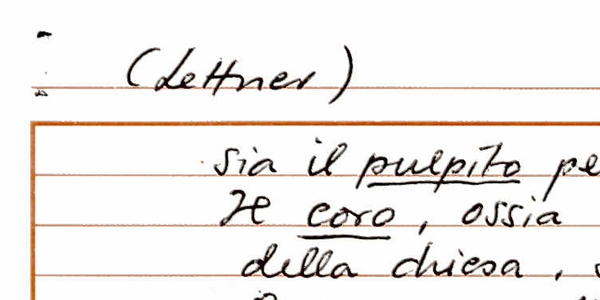 (Lettner)
sia il pulpito pe
Il coro, ossia
della chiesa,